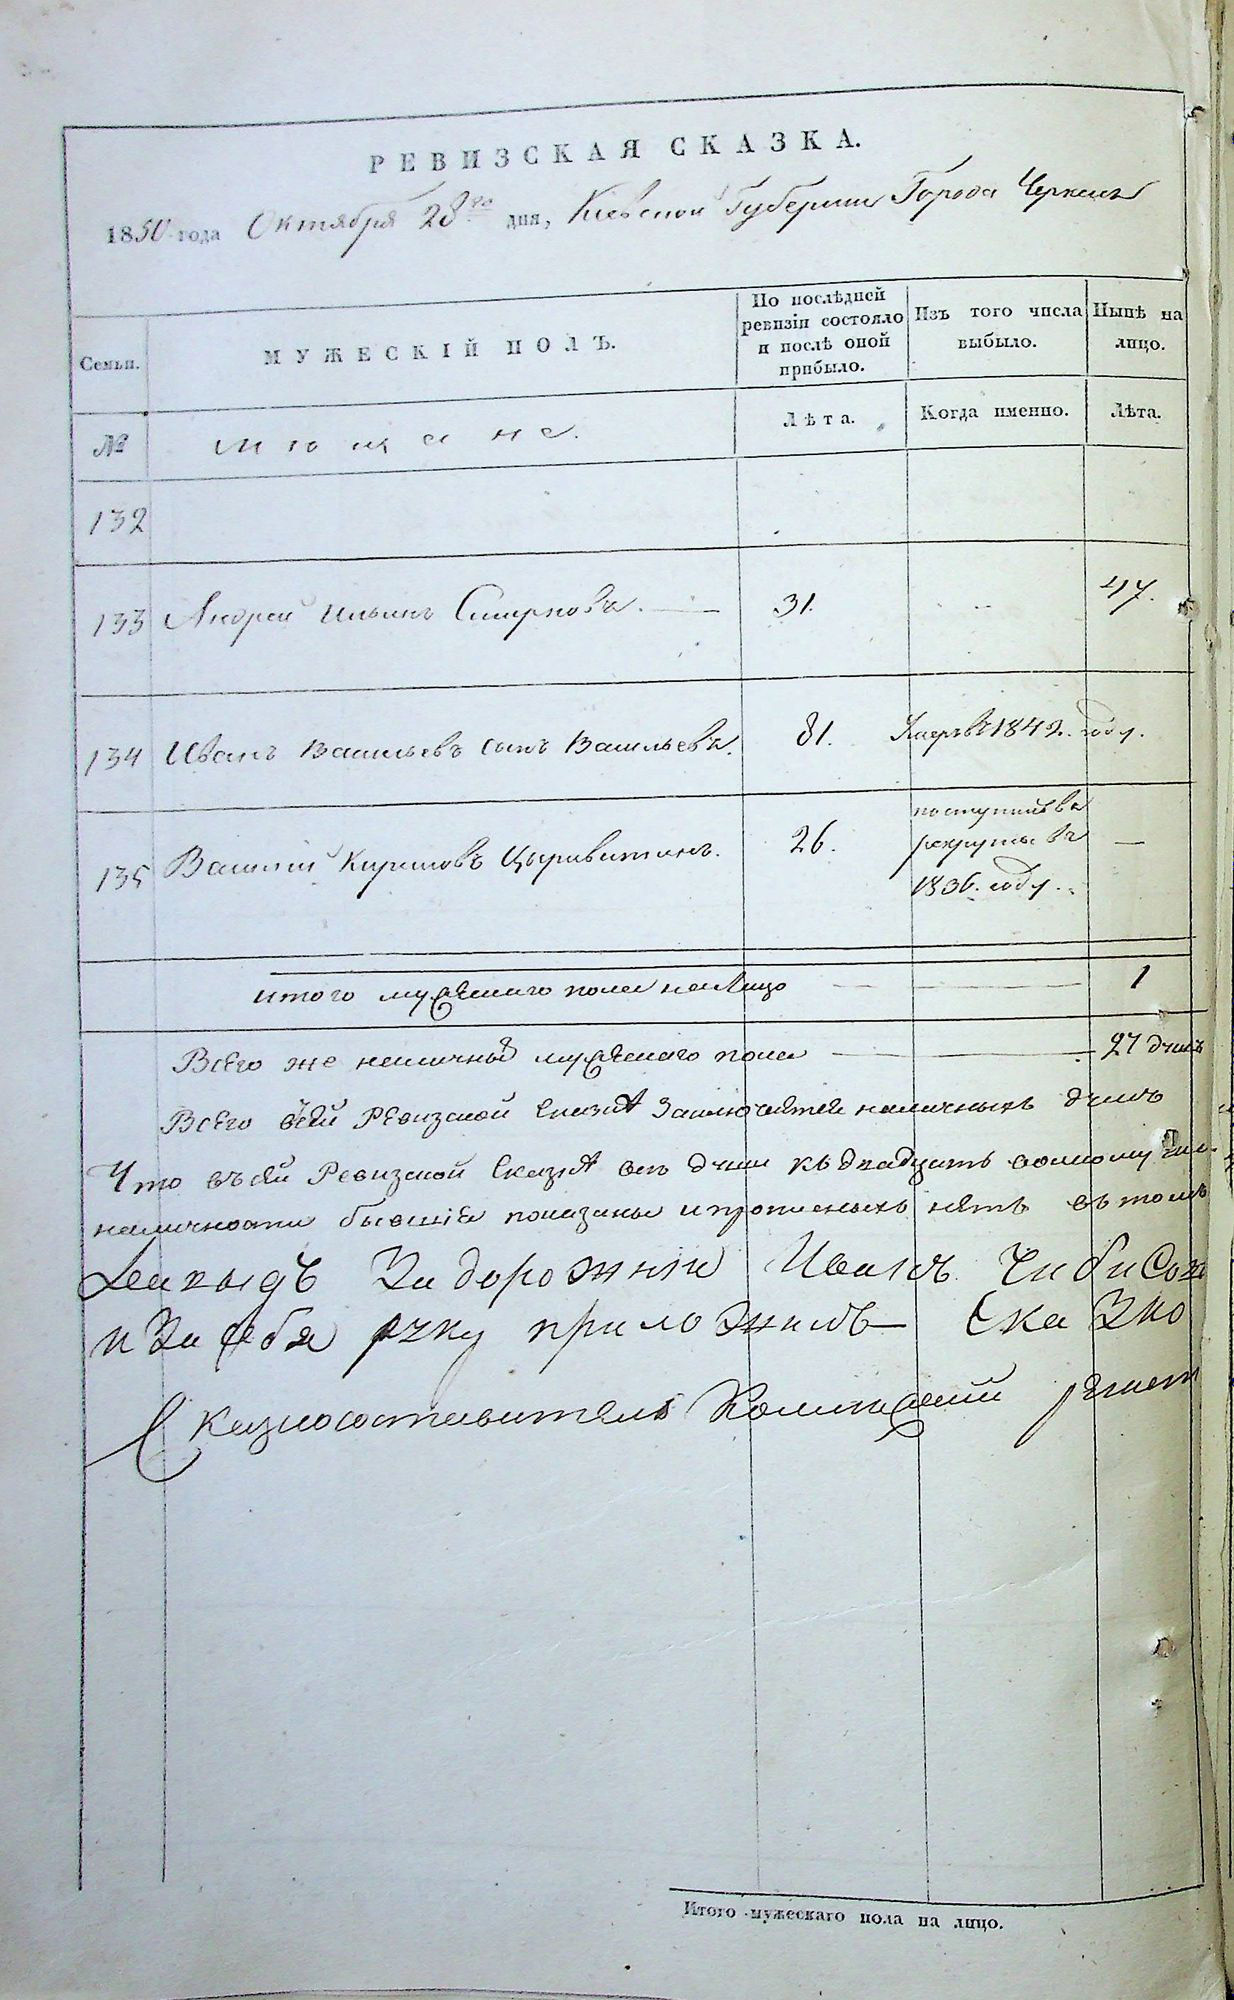 РЕВИЗСКАЯ СКАЗКА.
1850 года Октября 28го дня, Киевской Губернии Города Черкасъ
Семьи. МУЖЕСКІЙ ПОЛЪ. По послѣдней ревизіи состояло и послѣ оной прибыло. Изъ того числа выбыло. Нынѣ на лицо.
№ мѣщане. Лѣта. Когда именно. Лѣта.
132
133 Андрей Ильинъ Смирновъ. 31. 47.
134 Иванъ Васильевъ сынъ Васильевъ. 81. Умеръ въ 1842. году.
135 Василій Кириловъ 26. поступилъ въ рекруты въ 1836. году. —
итого мужескаго пола на лицо 1
Всего же наличных мужескаго пола 27 душъ
Всего въ сей Ревизской Сказкѣ заключается наличныхъ душъ
Что въ сей Ревизской Сказкѣ всѣ души къ двадцать осмому
наличности бывшія показаны и прописныхъ нѣтъ въ томъ
Задорожній Иванъ
и за себя руку приложилъ Сказко
Сказкосоставитель Колежский регист
Итого мужескаго пола на лицо.